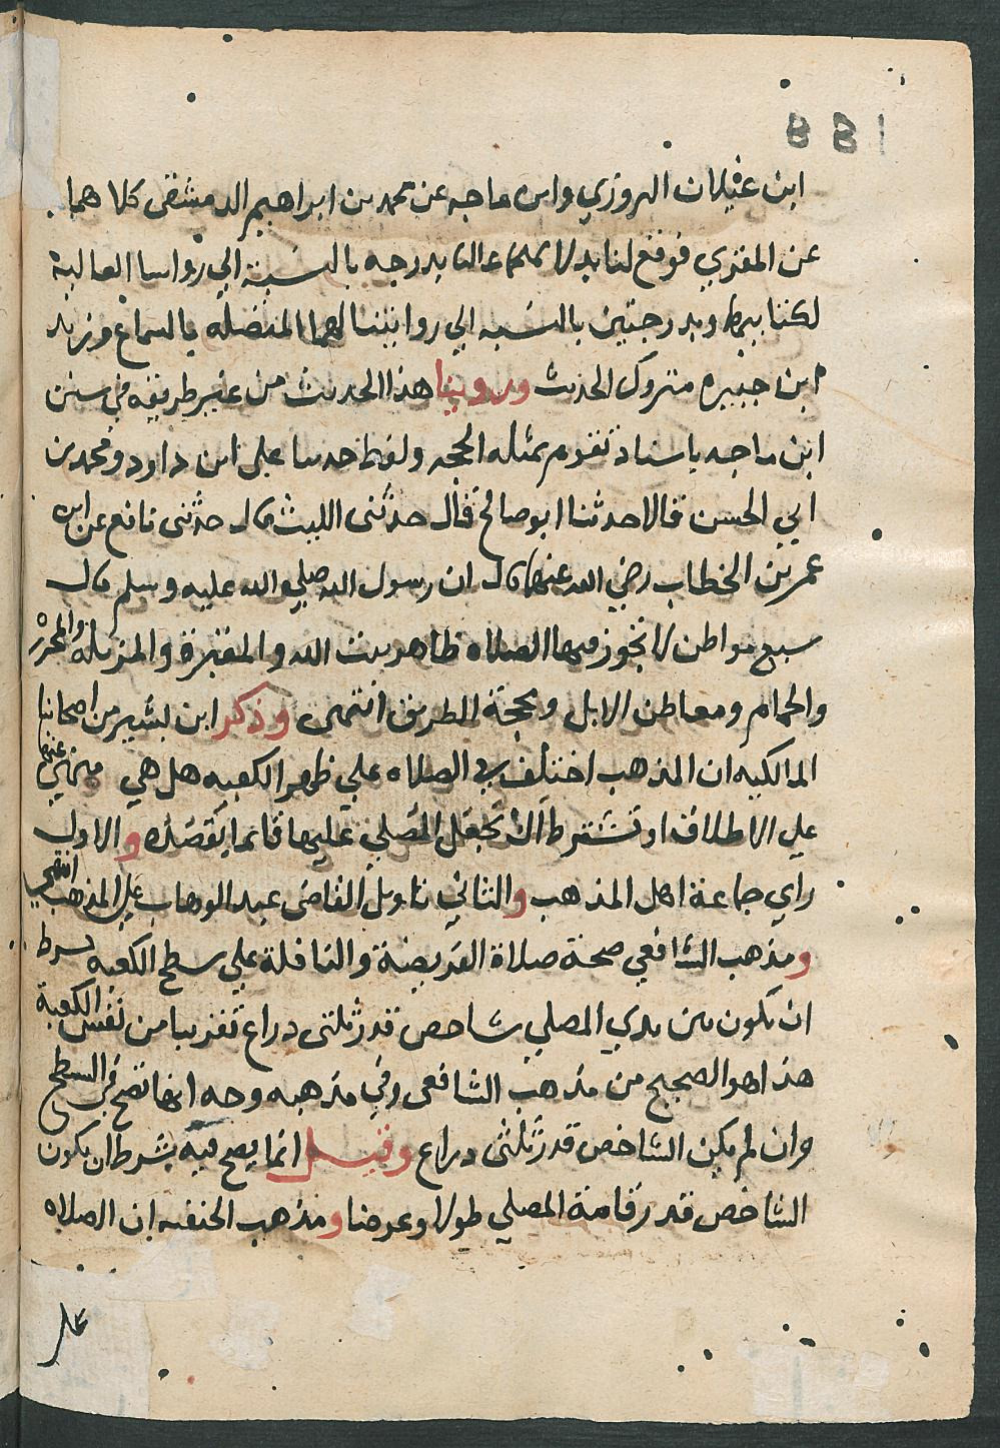 ابن غيلان المروزي وابن ماجه عن محمد بن ابراهيم الدمشقى كلاهما
عن المقري فوقع لنا بدلا لهما عاليا بدرجه بالنسبة الي رواسا العالية
لكتابيهما وبدرجتين بالنسبه الي روايتنا لهما المتصله بالسماع وزيد
ابن جبيره متروك الحديث وروينا هذا الحديث من غير طريقه في سنن
ابن ماجه باسناد تقدم بمثله الحجه ولفظه حدسا علي ابن داود ومحمد بن
ابي الحسن قالا حدثنا ابو صالح قال حدثنى الليث قال حدثنى نافع عن ابن
عمر بن الخطاب رضي الله عنهما قال ان رسول الله صلي الله عليه وسلم قال
سبع مواطن لا تجوز فيها الصلاه ظاهر بيت الله والمقبرة والمزبلة والمجزر
والحمام ومعاطن الابل ومحجة الطريق انتهى وذكر ابن بشير من اصحابنا
المالكيه ان المذهب اختلف في الصلاه علي ظهر الكعبه هل هي منهي عنها
علي الاطلاق او تشترط ان تجعل المصلي عليها قايما يقصده والاول
راي جماعة اهل المذهب والثاني تاويل القاضى عبد الوهاب علي المذهب انتهى
ومذهب الشافعي صحة صلاة الفريضة والنافلة علي سطح الكعبه بشرط
ان يكون بين يدي المصلي شاخص قدر ثلثى دراع تقريبا من نفس الكعبة
هذا هو الصحيح من مذهب الشافعى وفي مذهبه وجه انها تصح في السطح
وان لم يكن الشاخص قدر ثلثى دراع وقيل انما يصح فيه بشرط ان يكون
الشاخص قدر قامة المصلي طولا وعرضا ومذهب الحنفيه ان الصلاه